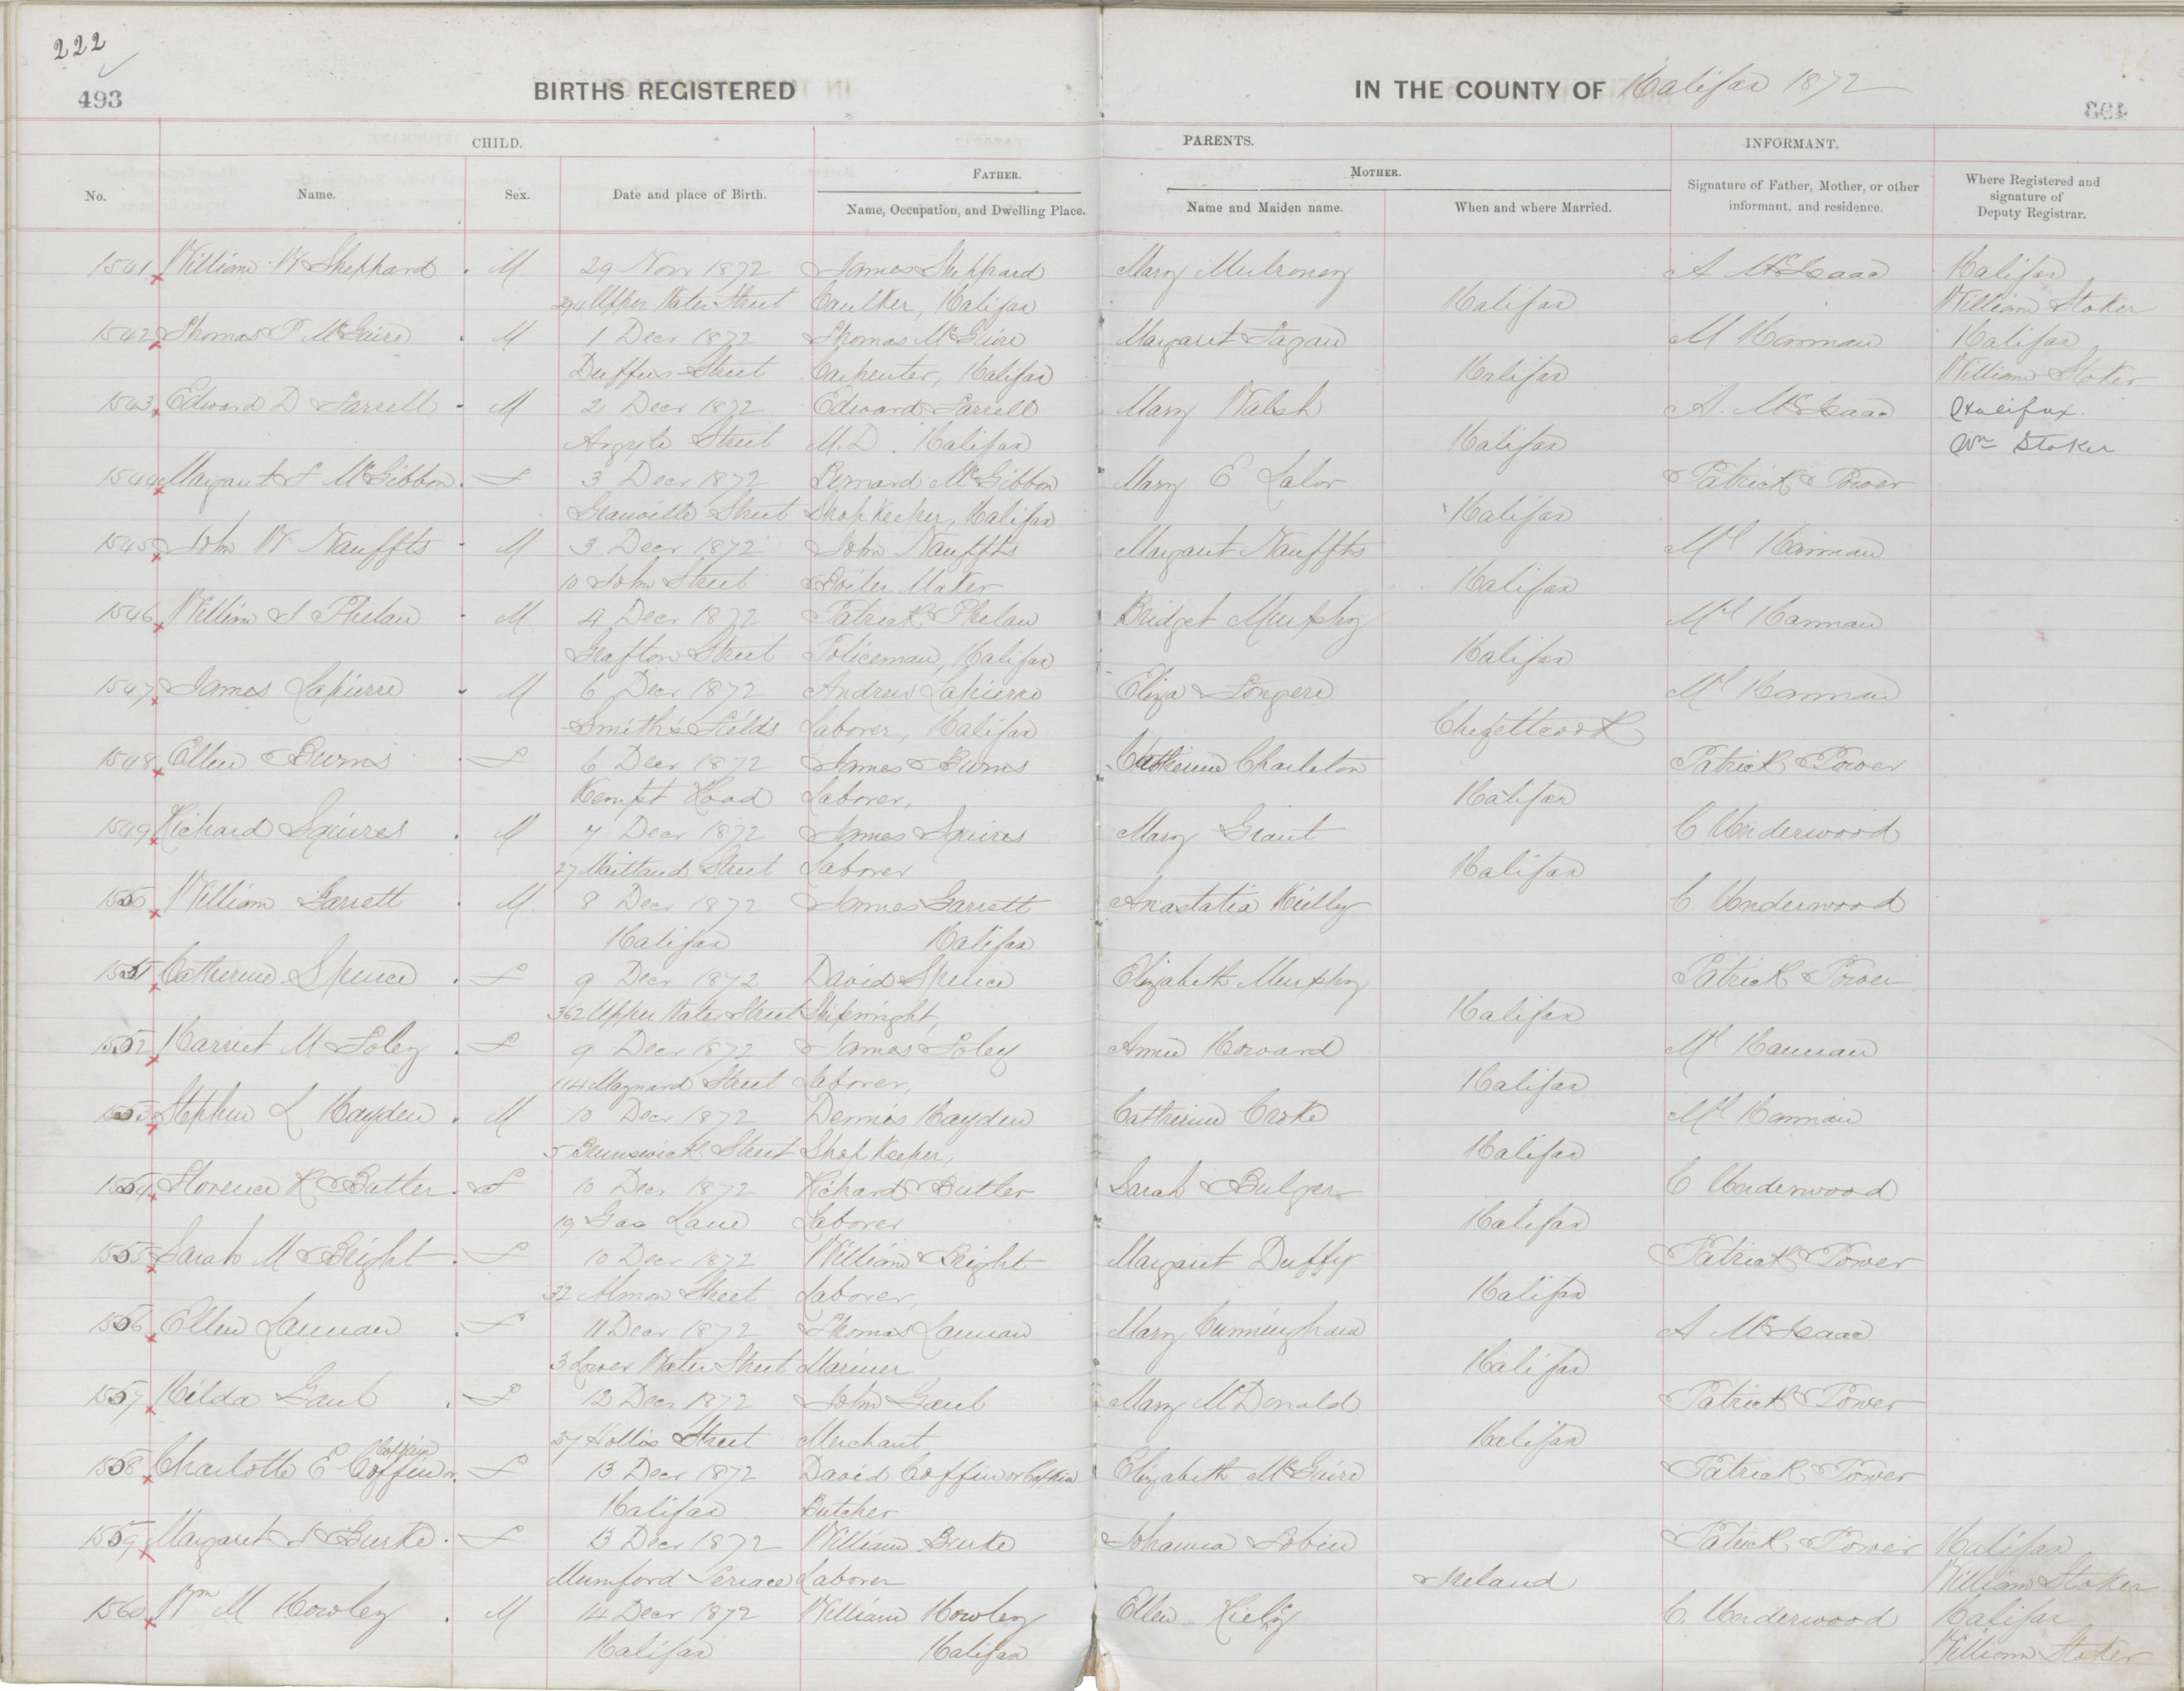 222
493
BIRTHS REGISTERED
IN THE COUNTY OF Halifax 1872
CHILD. PARENTS. INFORMANT.
FATHER. MOTHER.
No. Name. Sex. Date and place of Birth. Name, Occupation, and Dwelling Place. Name and Maiden name. When and where Married. Signature of Father, Mother, or other informant, and residence. Where Registered and signature of Deputy Registrar.
1541 William W Sheppard M 29 Novr 1872 James Sheppard Mary Mulroney A McIsaac Halifax
294 Upper Water Street Caulker, Halifax Halifax William Stoker
1542 Thomas P McGuire M 1 Decr 1872 Thomas McGuire Margaret Fagan M Hannan Halifax
Duffus Street Carpenter, Halifax Halifax William Stoker
1543 Edward D Farrell M 2 Decr 1872 Edward Farrell Mary Walsh A. McIsaac Halifax.
Argyle Street M.D. Halifax Halifax Wm Stoker
1544 Margaret McGibbon F 3 Decr 1872 Bernard McGibbon Mary E Lalor Patrick Power
Granville Street Shop Keeper, Halifax Halifax
1545 John W Nauffts M 3 Decr 1872 John Nauffts Margaret Nauffts Ml Hannan
10 John Street Boiler Maker Halifax
1546 William J Phelan M 4 Decr 1872 Patrick Phelan Bridget Murphy Ml Hannan
Grafton Street Policeman, Halifax Halifax
1547 James Lapierre M 6 Decr 1872 Andrew Lapierre Eliza Ml Hannan
Smith's Fields Laborer, Halifax Chezettcook
1548 Ellen Burns F 6 Decr 1872 James Burns Catherine Charleton Patrick Power
Kempt Road Laborer, Halifax
1549 Richard Squires M 7 Decr 1872 James Squires Mary Grant C Underwood
27 Maitland Street Laborer Halifax
1550 William Garrett M. 8 Decr 1872 James Garrett Anastatia C Underwood
Halifax Halifax
1551 Catherine Spence F 9 Decr 1872 David Spence Elizabeth Murphy Patrick Power
362 Upper Water Street Shipwright, Halifax
1552 Harriet M Foley F 9 Decr 1872 James Foley Annie Howard Ml Hannan
114 Maynard Street Laborer, Halifax
1553 Stephen L Hayden M 10 Decr 1872 Dennis Hayden Catherine Croke Ml Hannan
5 Brunswick Street Shop Keeper, Halifax
1554 Florence R Butler F 10 Decr 1872 Richard Butler Sarah Bulger C Underwood
19 Gas Lane Laborer Halifax
1555 Sarah M Bright F 10 Decr 1872 William Bright Margaret Duffy Patrick Power
32 Almon Street Laborer, Halifax
1556 Ellen Lannan F 11 Decr 1872 Thomas Lannan Mary Cunningham A McIsaac
3 Lower Water Street Mariner Halifax
1557 Hilda Gaul F 12 Decr 1872 John Gaul Mary McDonald Patrick Power
37 Hollis Street Merchant Halifax
1558 Charlotte E Coffin or F 13 Decr 1872 David Coffin or Elizabeth McGuire Patrick Power
Halifax Butcher
1559 Margaret J Burke F 13 Decr 1872 William Burke Johanna Tobin Patrick Power Halifax
Mumford Terrace Laborer Ireland William Stoker
1560 Wm M Howley M 14 Decr 1872 William Howley Ellen C. Underwood Halifax
Halifax Halifax William Stoker